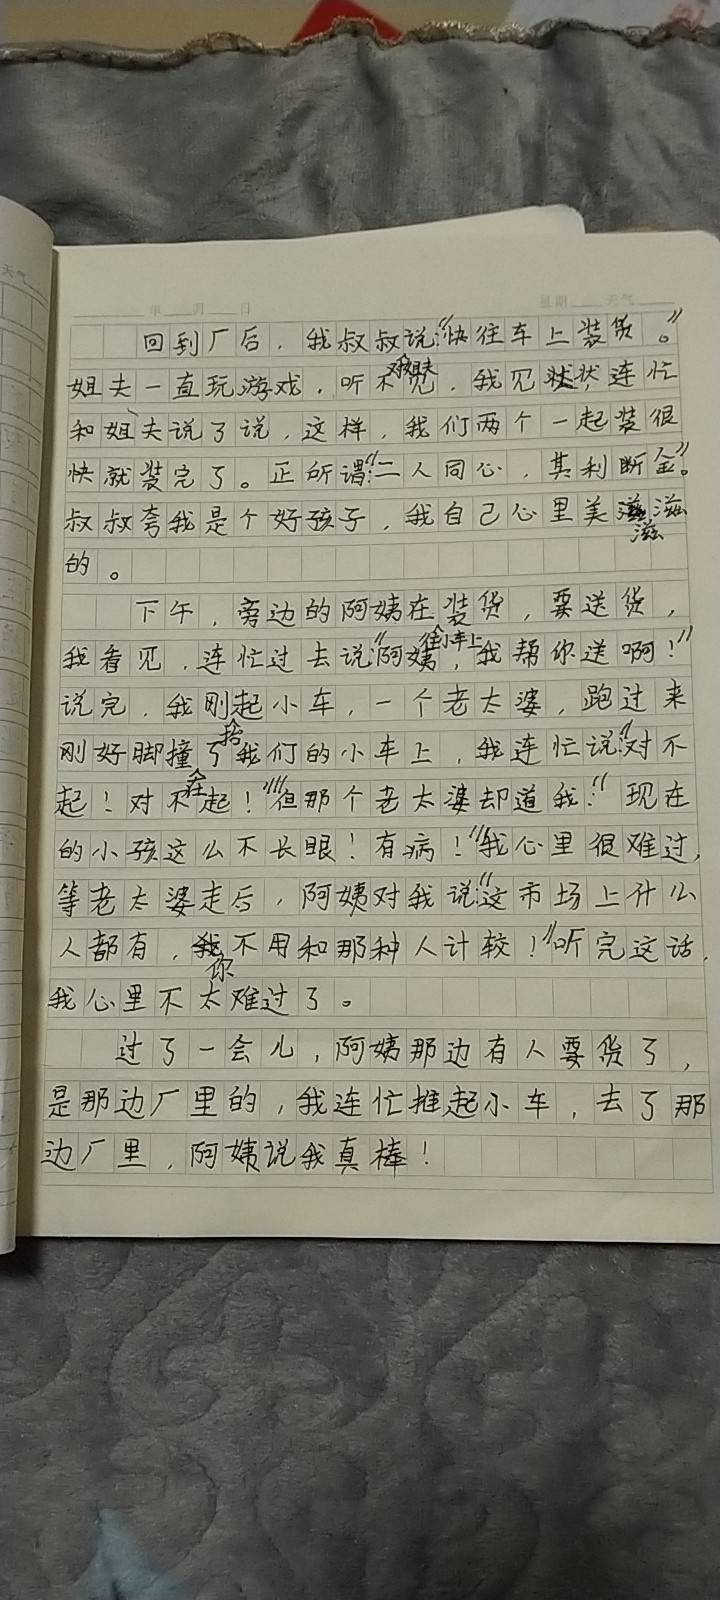 年 月 日 星期 天气
天气
回到厂后，我叔叔说：“快往车上装货。”
姐夫一直玩游戏，听不见，我见状，连忙
和姐夫说了说，这样，我们两个一起装很
快就装完了。正所谓：“二人同心，其利断金”。
叔叔夸我是个好孩子，我自己心里美滋滋
的。
下午，旁边的阿姨在往小车上装货，要送货，
我看见，连忙过去说：“阿姨，我帮你送啊！”
说完，我刚抬起小车，一个老太婆，跑过来
刚好脚撞在了我们的小车上，我连忙说：“对不
起！对不起！”但那个老太婆却道我：“现在
的小孩这么不长眼！有病！”我心里很难过，
等老太婆走后，阿姨对我说：“这市场上什么
人都有，你不用和那种人计较！”听完这话，
我心里不太难过了。
过了一会儿，阿姨那边有人要货了，
是那边厂里的，我连忙推起小车，去了那
边厂里，阿姨说我真棒！